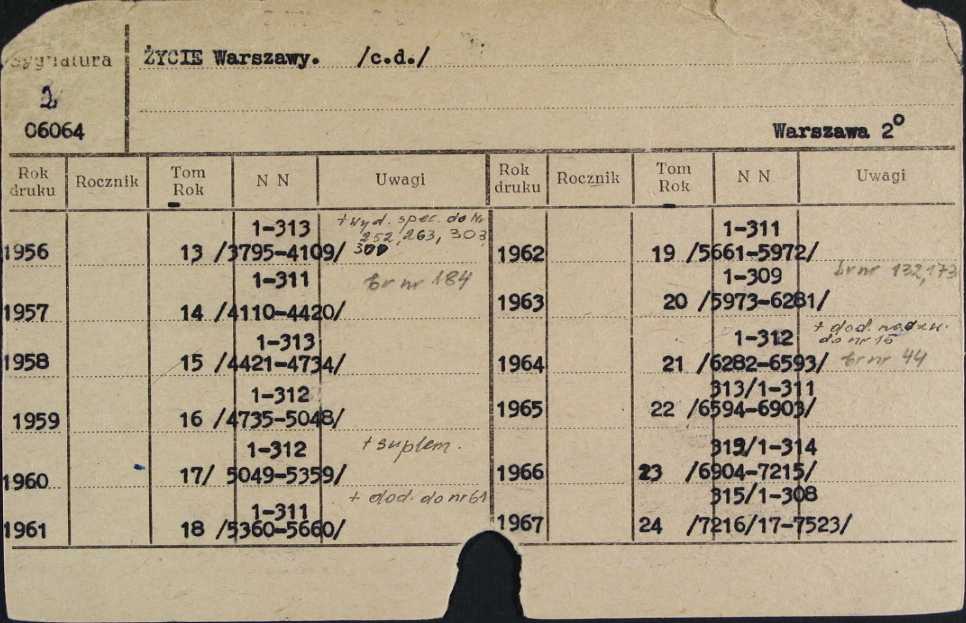 Sygnatura
ŻYCIE Warszawy. /c.d./
2
06064
Warszawa 2°
Rok druku Rocznik Tom Rok N N Uwagi
1956 13 1-313 /3795-4109/ + wyd. spec. do Nr 252, 263, 303,
1957 14 1-311 /4110-4420/ br nr 184
1958 15 1-313 /4421-4734/
1959 16 1-312 /4735-5048/
1960 17/ 1-312 5049-5359/ + suplem.
1961 18 1-311 /5360-5660/ + dod. do nr 61
Rok druku Rocznik Tom Rok N N Uwagi
1962 19 1-311 /5661-5972/
1963 20 1-309 /5973-6281/ br nr 132, 173
1964 21 1-312 /6282-6593/ + dod. do nr 15 br nr 44
1965 22 313/1-311 /6594-6903/
1966 23 312/1-314 /6904-7215/
1967 24 315/1-308 /7216/17-7523/